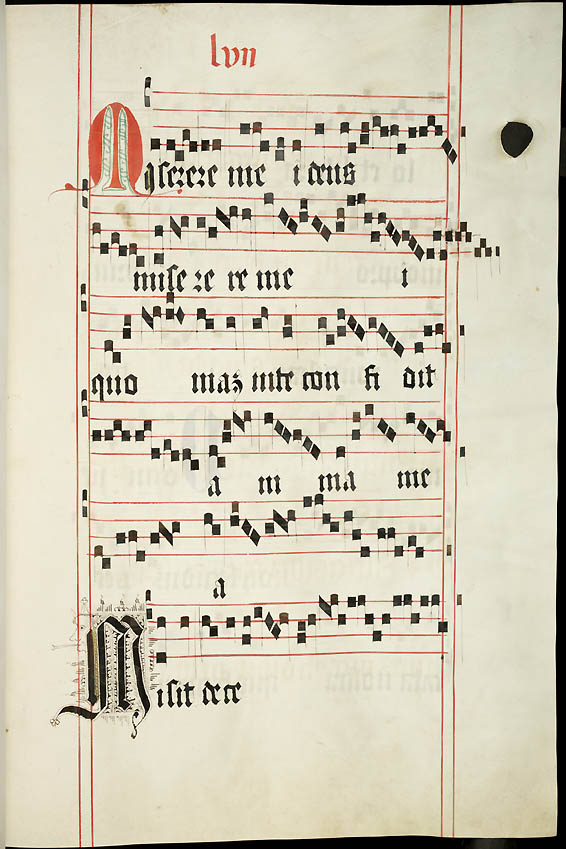 lvn
Miserere me i deus
mise re re me i
quo maz inte con fi dit
a ni ma me
a
Misit de ce